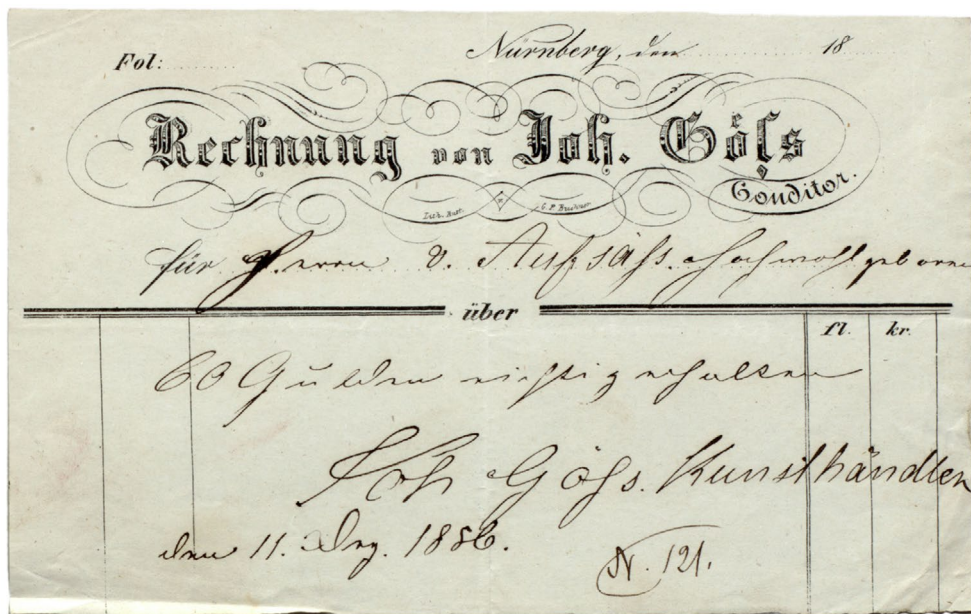 Fol:
Nürnberg, den 18
Rechnung von Joh. Göſs
Conditor.
für Herrn v. Aufsäſs. Hochwohlgeboren
über
fl. kr.
60 Gulden richtig erhalten
Joh Göſs. Kunsthändler
den 11. Dez. 1856.
N. 121.